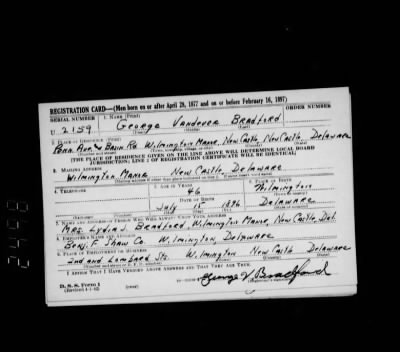 REGISTRATION CARD—(Men born on or after April 28, 1877 and on or before February 16, 1897)
SERIAL NUMBER 1. NAME (Print) ORDER NUMBER
U 2159 GEORGE VANDEVER BRADFORD
(First) (Middle) (Last)
2. PLACE OF RESIDENCE (Print)
Penn. Ave. & Basin Rd. Wilmington Manor, New Castle, New Castle, Delaware
(THE PLACE OF RESIDENCE GIVEN ON THE LINE ABOVE WILL DETERMINE LOCAL BOARD
JURISDICTION; LINE 2 OF REGISTRATION CERTIFICATE WILL BE IDENTICAL)
3. MAILING ADDRESS
Wilmington Manor New Castle, Delaware
4. TELEPHONE 5. AGE IN YEARS 6. PLACE OF BIRTH
46 Wilmington
DATE OF BIRTH
July 15 1896 Delaware
7. NAME AND ADDRESS OF PERSON WHO WILL ALWAYS KNOW YOUR ADDRESS
Mrs. Lydia J. Bradford, Wilmington Manor, New Castle, Del.
8. EMPLOYER'S NAME AND ADDRESS
Benj. F. Shaw Co. Wilmington, Delaware
9. PLACE OF EMPLOYMENT OR BUSINESS
2nd and Lombard Sts. Wilmington New Castle Delaware
I AFFIRM THAT I HAVE VERIFIED ABOVE ANSWERS AND THAT THEY ARE TRUE.
D. S. S. Form 1
(Revised 4-1-42) (over) George V Bradford
2498